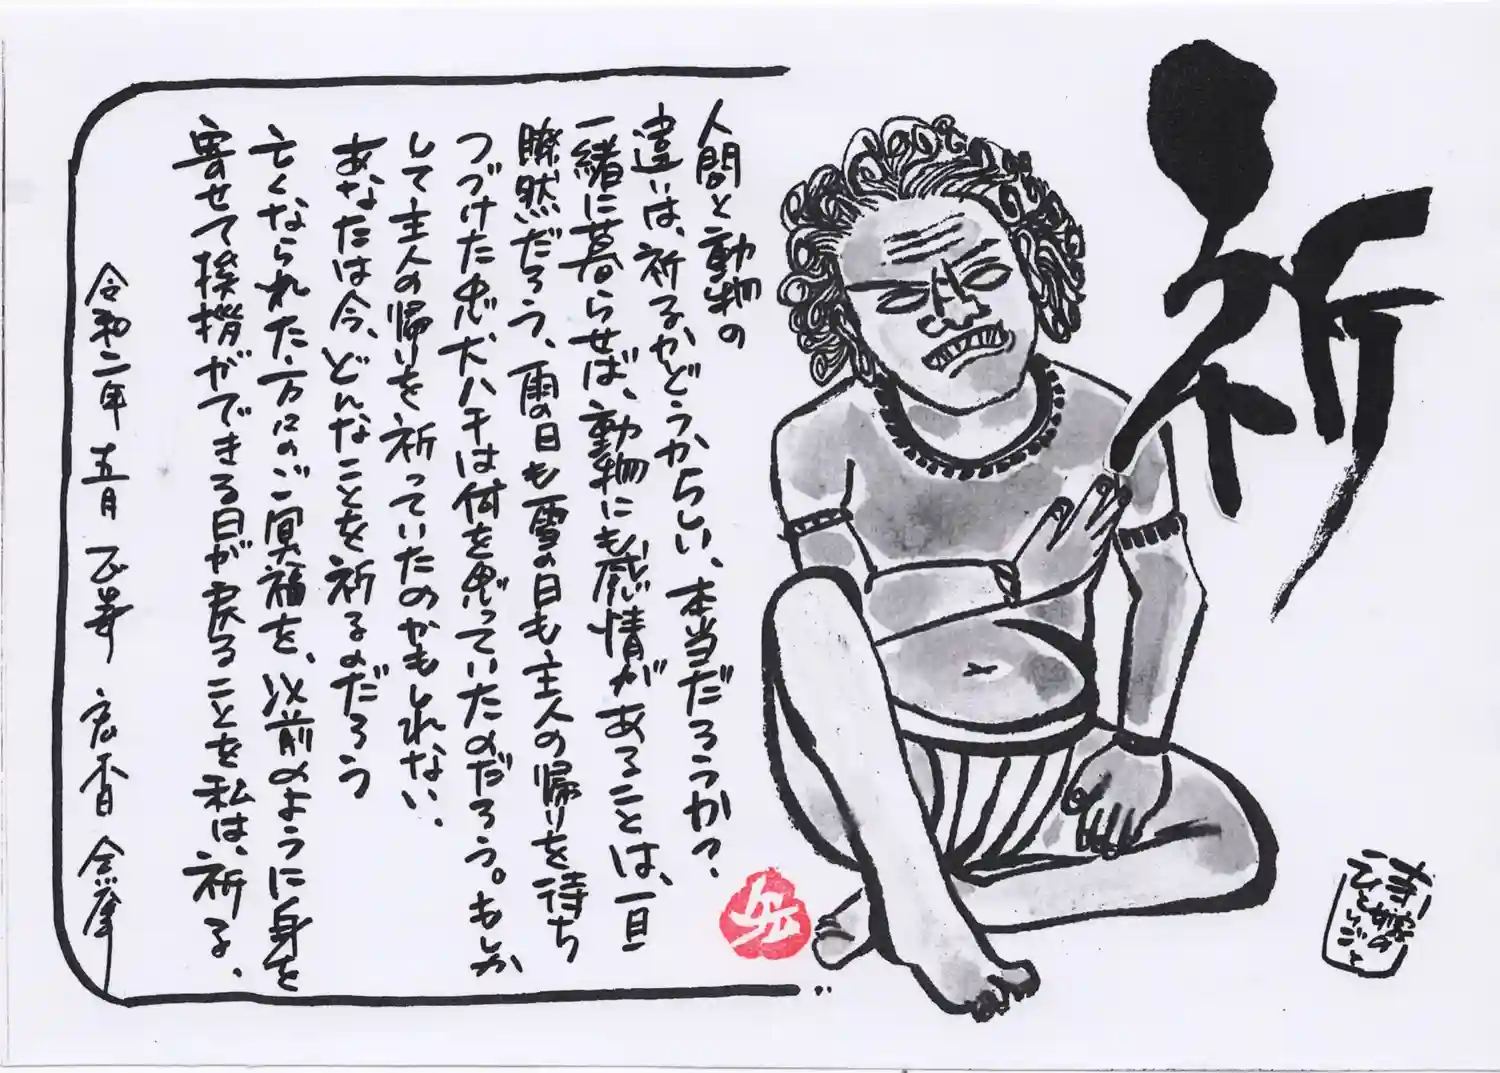 祈
人間と動物の
違いは、祈るかどうからしい、本当だろうか?
一緒に暮らせば、動物にも感情があることは、一目
瞭然だろう、雨の日も雪の日も主人の帰りを待ち
つづけた忠犬ハチは何を思っていたのだろう。もしか
して主人の帰りを祈っていたのかもしれない.
あなたは今、どんなことを祈るのだろう
亡くなられた方々のご冥福を、以前のように身を
寄せて挨拶ができる日が戻ることを私は、祈る、
令和二年 五月
ひとりごと